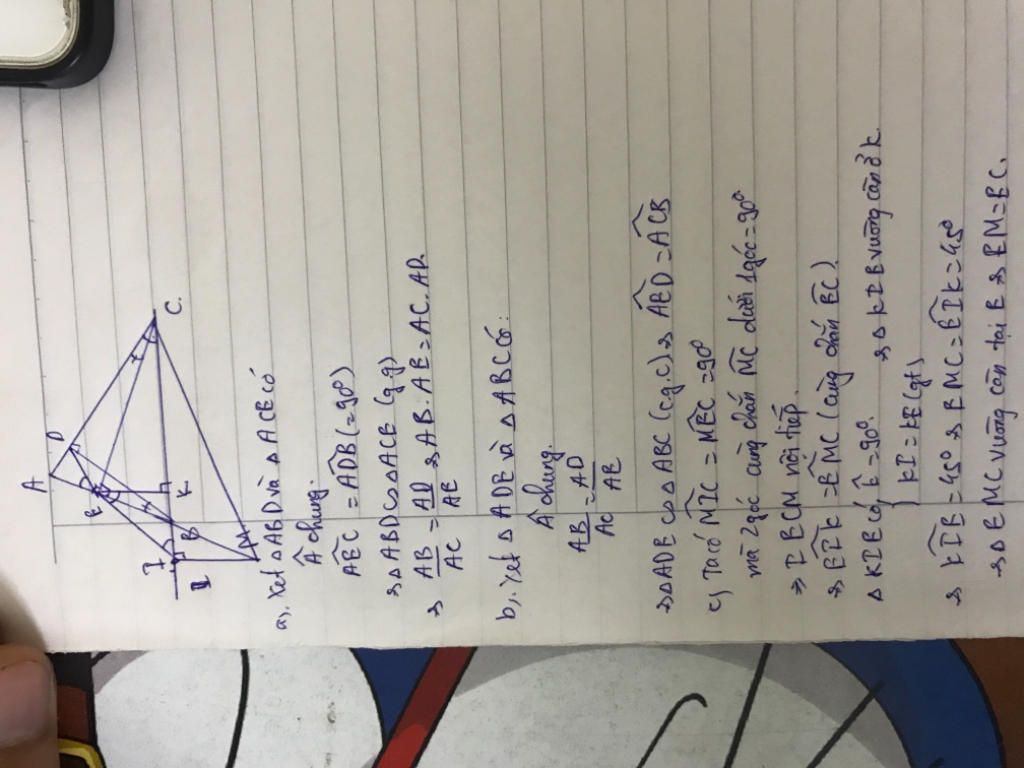 A
D
E
I
B
K
C
M
a). Xét △ABD và △ACE có
Â chung.
\widehat{AEC} = \widehat{ADB} (=90°)
⇒ △ABD ∽ △ACE (g.g)
⇒ \frac{AB}{AC} = \frac{AD}{AE} ⇒ AB.AE = AC.AD.
b). Xét △ADE và △ABC có:
Â chung.
\frac{AB}{AC} = \frac{AD}{AE}
⇒ △ADE ∽ △ABC (c.g.c) ⇒ \widehat{AED} = \widehat{ACB}
c) Ta có \widehat{MIC} = \widehat{MEC} = 90°
mà 2 góc cùng chắn \widehat{MC} dưới 1 góc = 90°
⇒ IECM nội tiếp.
⇒ \widehat{EIK} = \widehat{EMC} (cùng chắn \widehat{EC})
△KIE có \widehat{K} = 90°.
KI = KE (gt) } ⇒ △KIE vuông cân ở K.
⇒ \widehat{KIE} = 45° ⇒ \widehat{EMC} = \widehat{EIK} = 45°
⇒ △EMC vuông cân tại E ⇒ EM = EC.